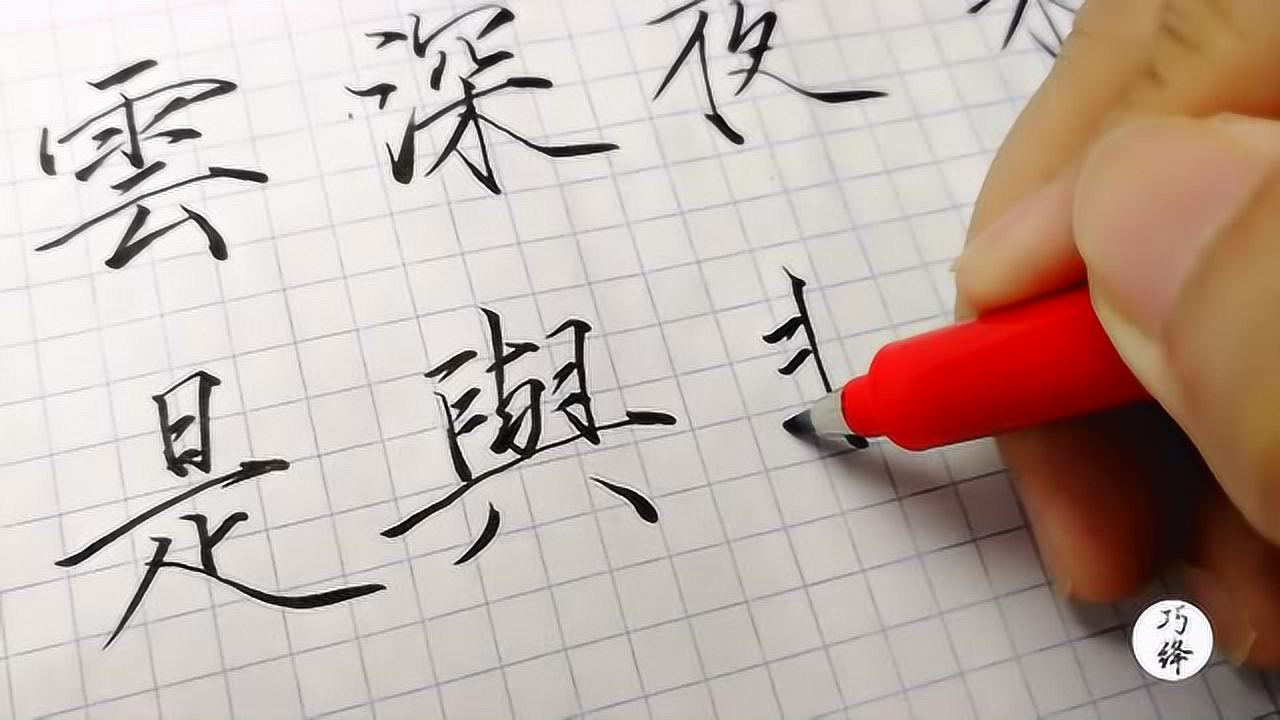 雲深夜
是與
巧绛